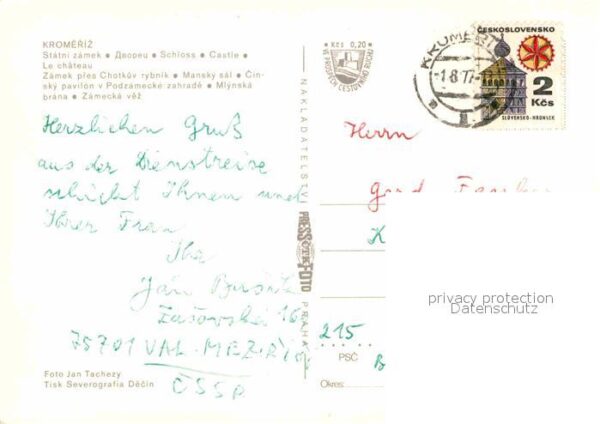 KROMĚŘÍŽ
Státní zámek • Дворец • Schloss • Castle •
Le château
Zámek přes Chotkův rybník • Manský sál • Čín-
ský pavilon v Podzámecké zahradě • Mlýnská
brána • Zámecká věž
Herzlichen Gruß
aus der Dienstreise
schickt Ihnen und
Ihrer Frau
Ihr
Jan
Zašovská 16
75701 VAL. MEZIŘÍČÍ
ČSSR
Foto Jan Tachezy
Tisk Severografia Děčín
Kčs 0,20
VE PROSPĚCH CESTOVNÍHO RUCHU
NAKLADATELSTVÍ
PRESSFOTO
PRAHA
KROMĚŘÍŽ
-1.8.77-
ČESKOSLOVENSKO
2
Kčs
SLOVENSKO-HRONSEK
Herrn
Gerd
K
215
PSČ
B
Okres:
privacy protection
Datenschutz